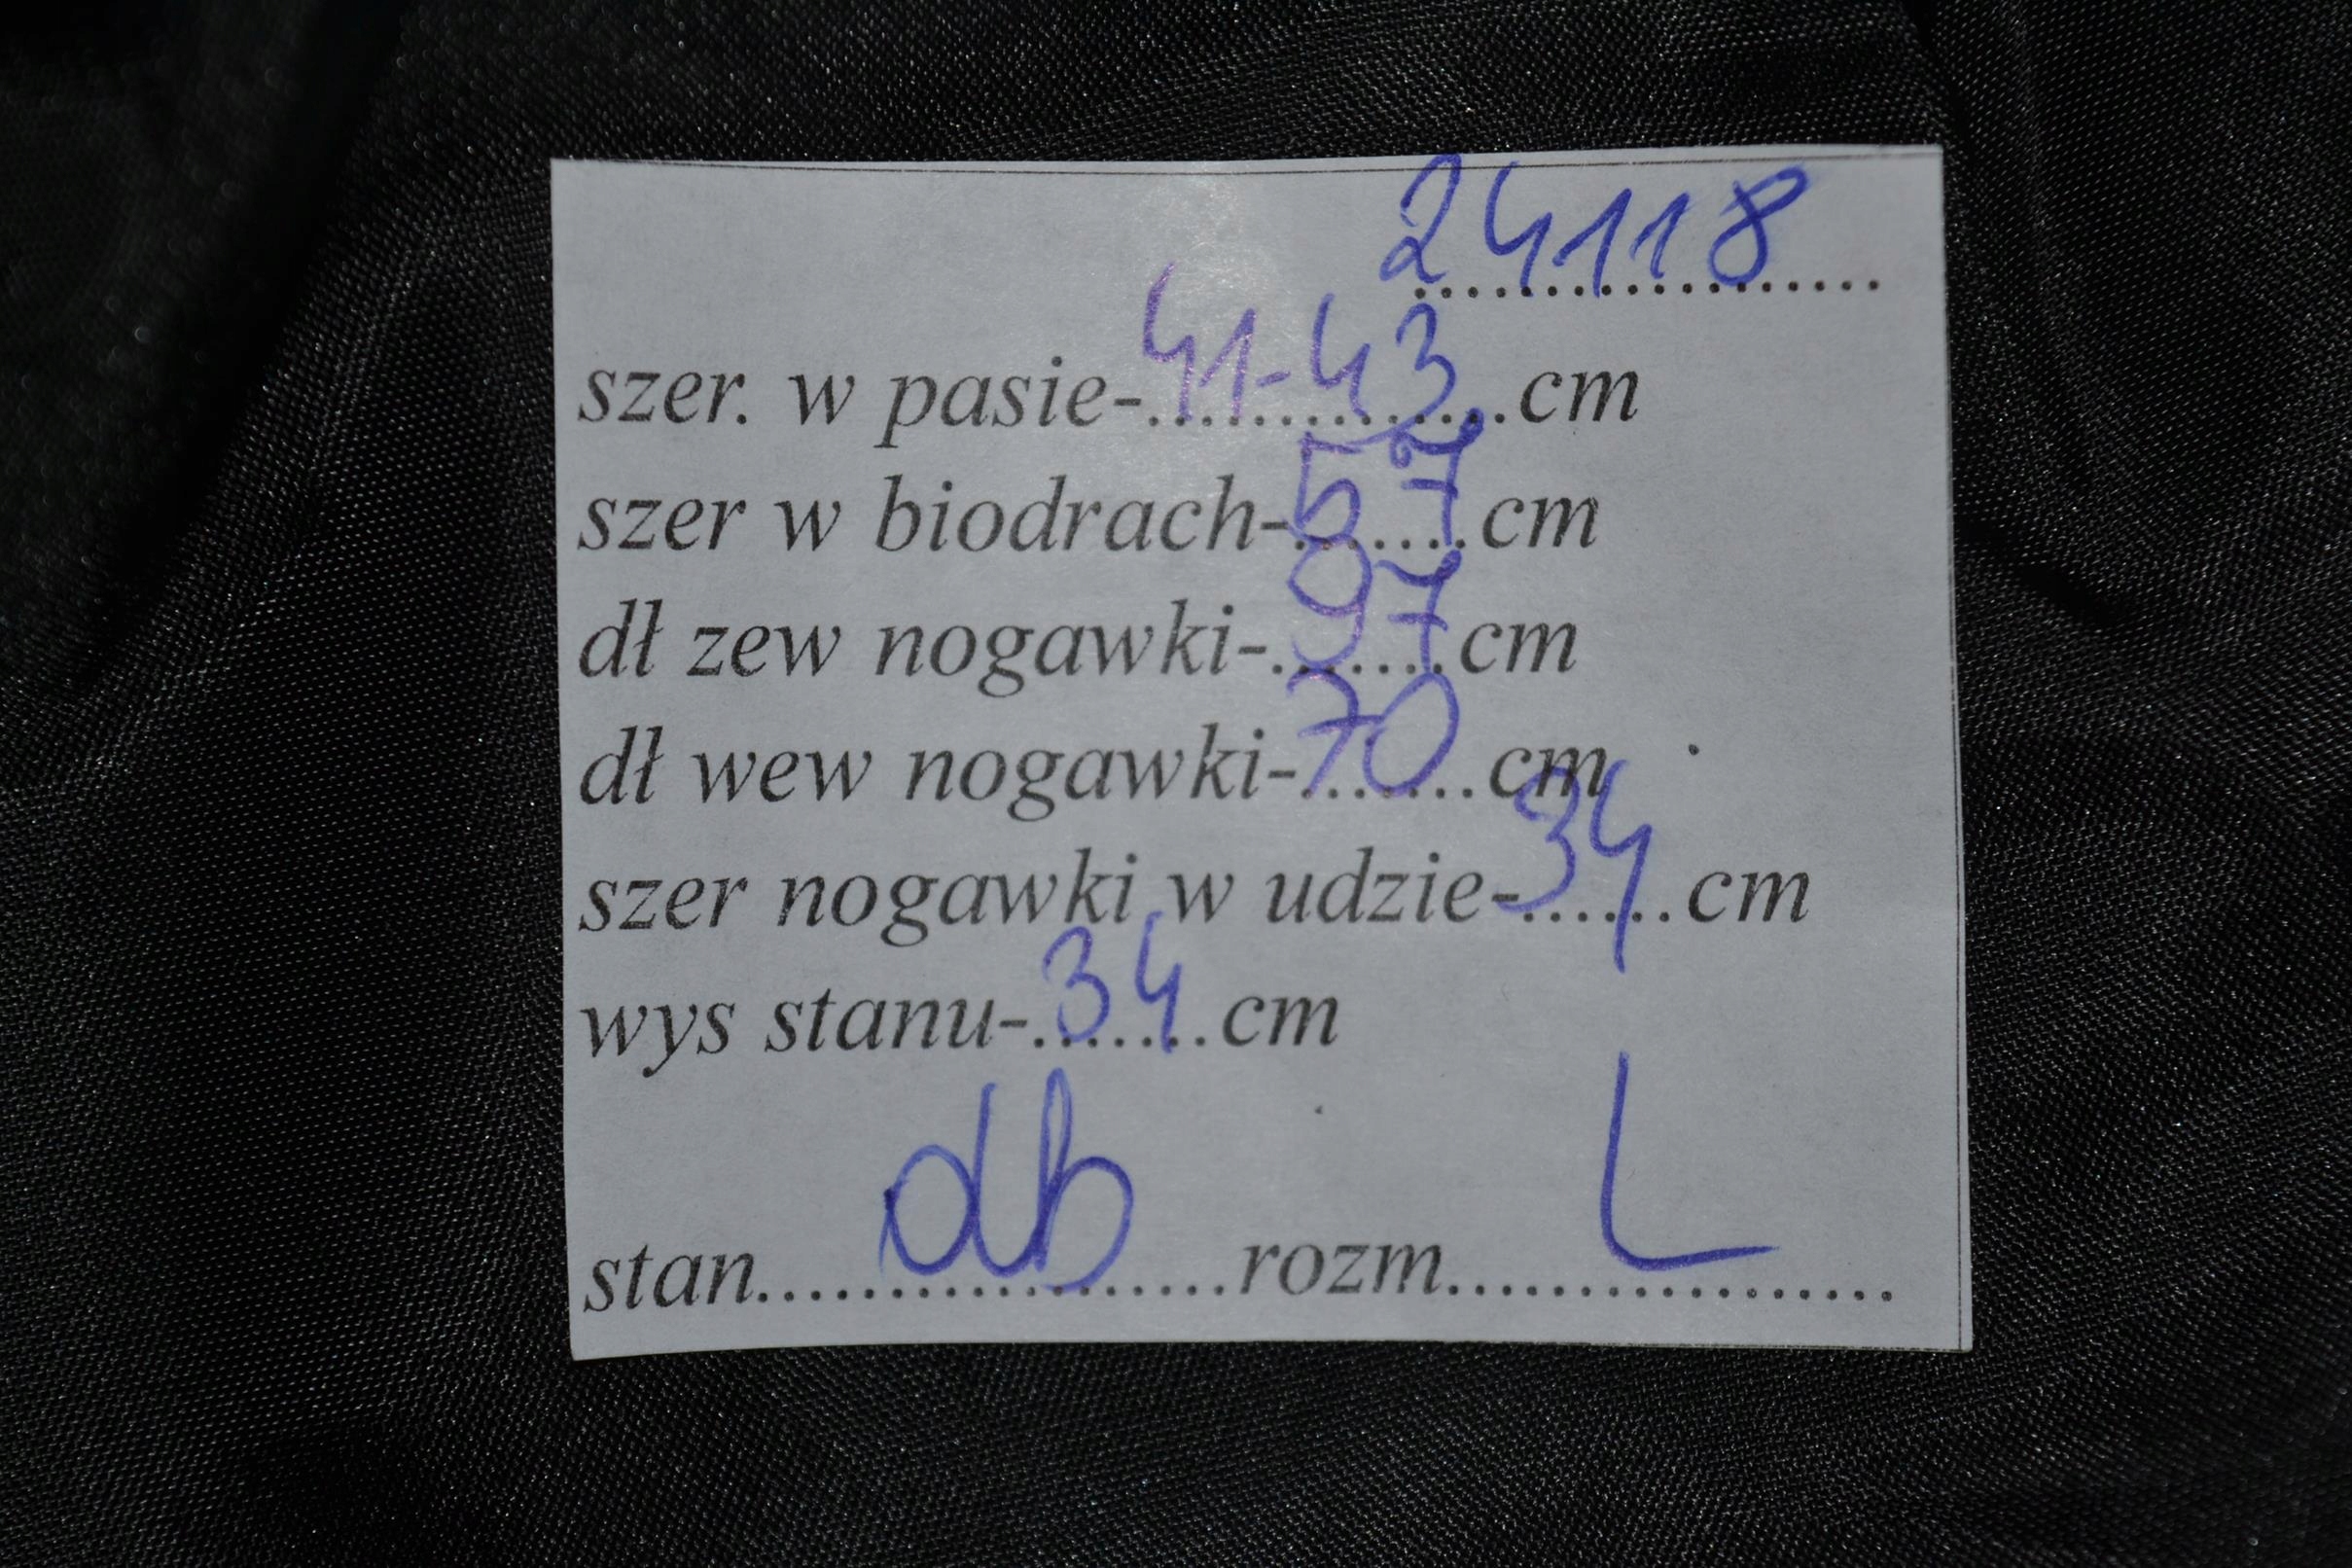 24118
szer. w pasie-41-43 cm
szer w biodrach-57 cm
dł zew nogawki-97 cm
dł wew nogawki-70 cm
szer nogawki w udzie-34 cm
wys stanu-34 cm
stan db rozm L